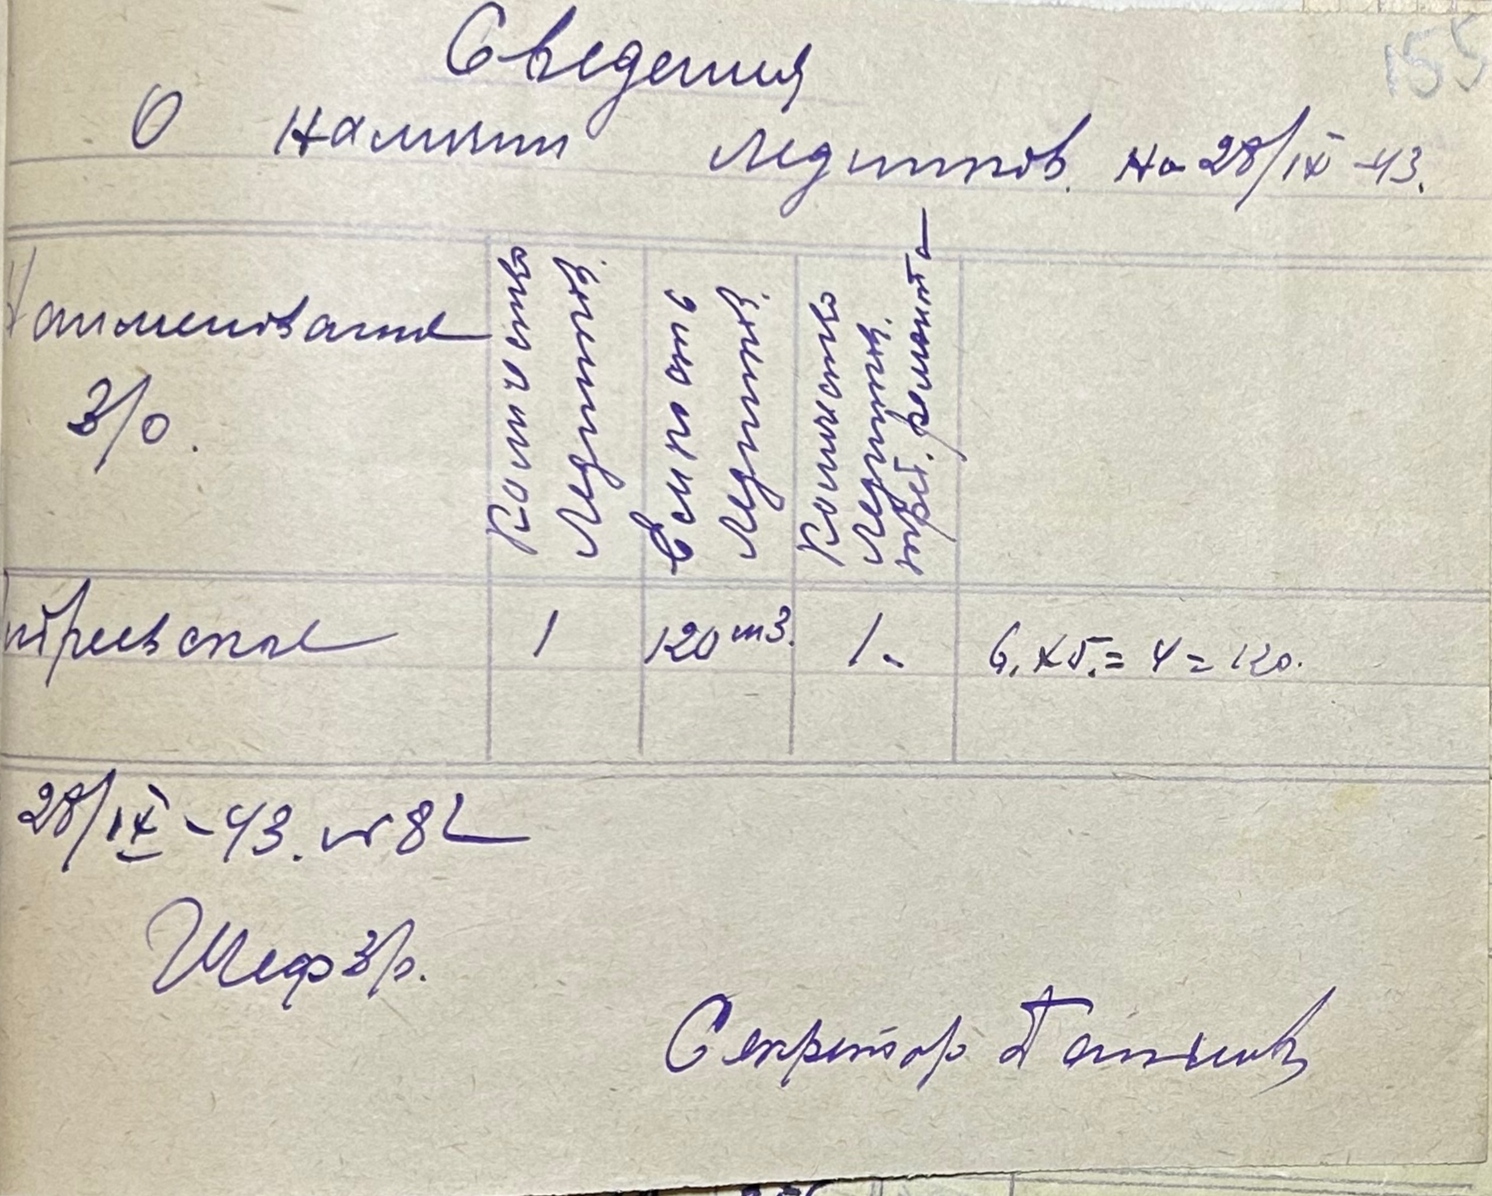 155
Сведения
О наличии ледников. на 28/IX-43.
Наименование
З/о.
Количество
Ледников.
Емкость
Ледников.
Количество
Ледников.
треб. ремонта
1
120 m3.
1.
6. х 5. = 4 = 120.
28/IX-43. № 82
Шеф З/о.
Секретарь